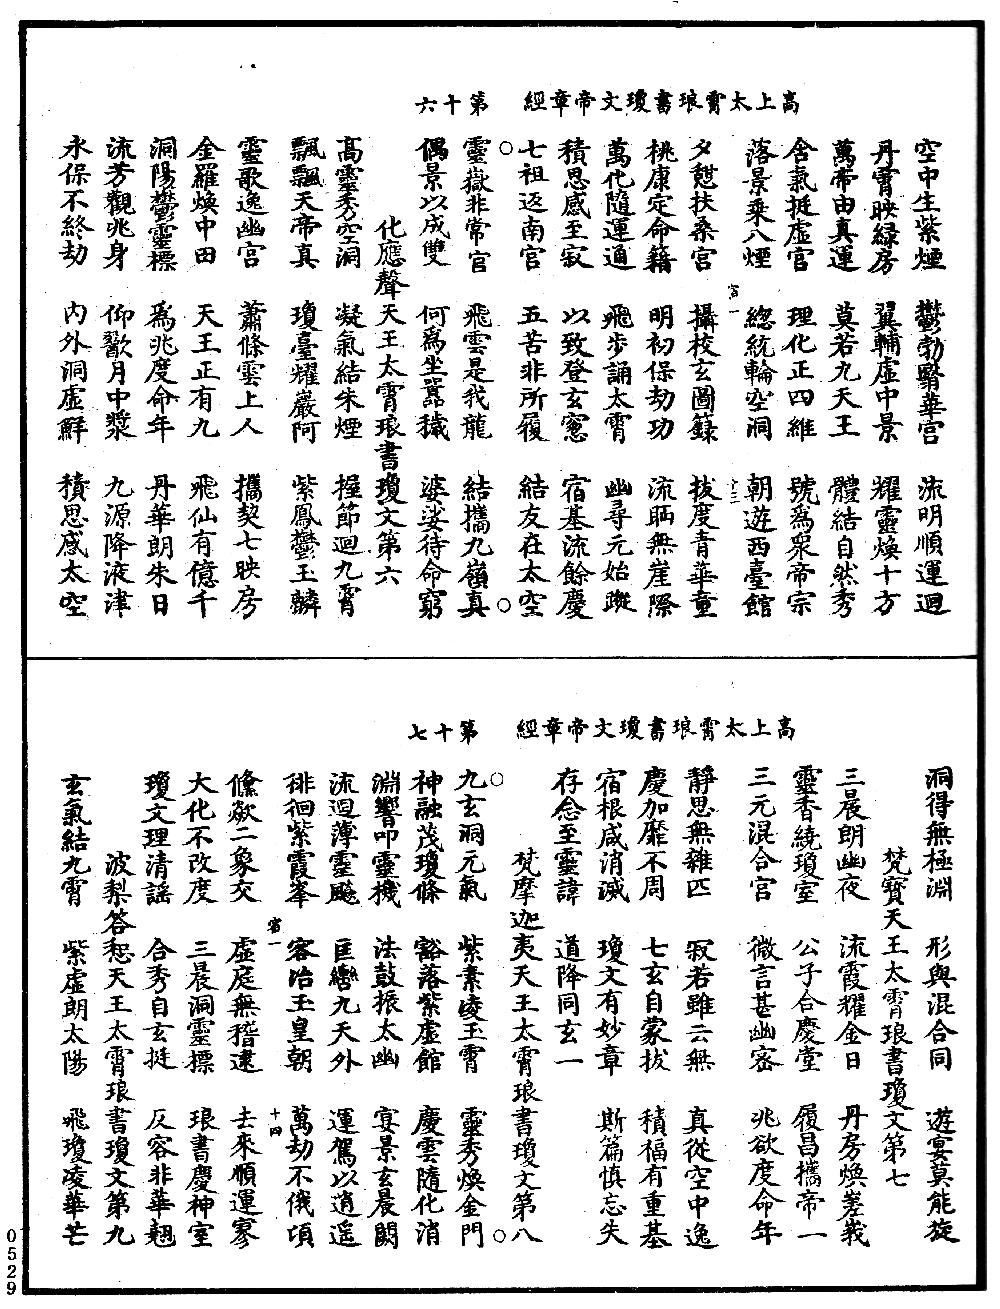 高上太霄琅書瓊文帝章經　第十六
空中生紫煙　鬱勃翳華宮　流明順運迴
丹霄映綠房　翼輔虛中景　耀靈煥十方
萬帝由真運　莫若九天王　體結自然秀
含氣挺虛官　理化正四維　號為眾帝宗
落景乘八煙　總統輪空洞　朝遊西臺館
宿一　十三
夕憩扶桑宮　攝校玄圖籙　拔度青華童
桃康定命籍　明初保劫功　流眄無崖際
萬化隨運通　飛步誦太霄　幽尋元始蹤
積思感至寂　以致登玄窓　宿基流餘慶
七祖返南宮　五苦非所履　結友在太空
○靈嶽非常官　飛雲是我龍　結攜九嶺真○
偶景以成雙　何為坐囂穢　婆娑待命窮
化應聲天王太霄琅書瓊文第六
高靈秀空洞　凝氣結朱煙　握節迴九霄
飄飄天帝真　瓊臺耀巖阿　紫鳳鬱玉轔
靈歌逸幽宮　蕭條雲上人　攜契七映房
金羅煥中田　天王正有九　飛仙有億千
洞陽鬱靈標　為兆度命年　丹華朗朱日
流芳觀兆身　仰歠月中漿　九源降液津
永保不終劫　內外洞虛鮮　積思感太空
高上太霄琅書瓊文帝章經　第十七
洞得無極淵　形與混合同　遊宴莫能旋
梵寶天王太霄琅書瓊文第七
三晨朗幽夜　流霞耀金日　丹房煥嵳峩
靈香繞瓊室　公子合慶堂　履昌攜帝一
三元混合宮　微言甚幽密　兆欲度命年
靜思無雜匹　寂若雖云無　真從空中逸
慶加靡不周　七玄自蒙拔　積福有重基
宿根咸消滅　瓊文有妙章　斯篇慎忘失
存念至靈諱　道降同玄一
梵摩迦夷天王太霄琅書瓊文第八
○九玄洞元氣　紫素凌玉霄　靈秀煥金門○
神融茂瓊條　豁落紫虛館　慶雲隨化消
淵響叩靈機　法鼓振太幽　宴景玄晨闕
流迴薄靈飈　匡轡九天外　運駕以逍遥
徘徊紫霞峯　容冶玉皇朝　萬劫不俄頃
宿一　十四
儵欻二象交　虛庭無稽逮　去來順運寥
大化不改度　三晨洞靈標　琅書慶神室
瓊文理清謠　合秀自玄挺　反容非華翹
波梨答惒天王太霄琅書瓊文第九
玄氣結九霄　紫虛朗太陽　飛瓊凌華芒
0529